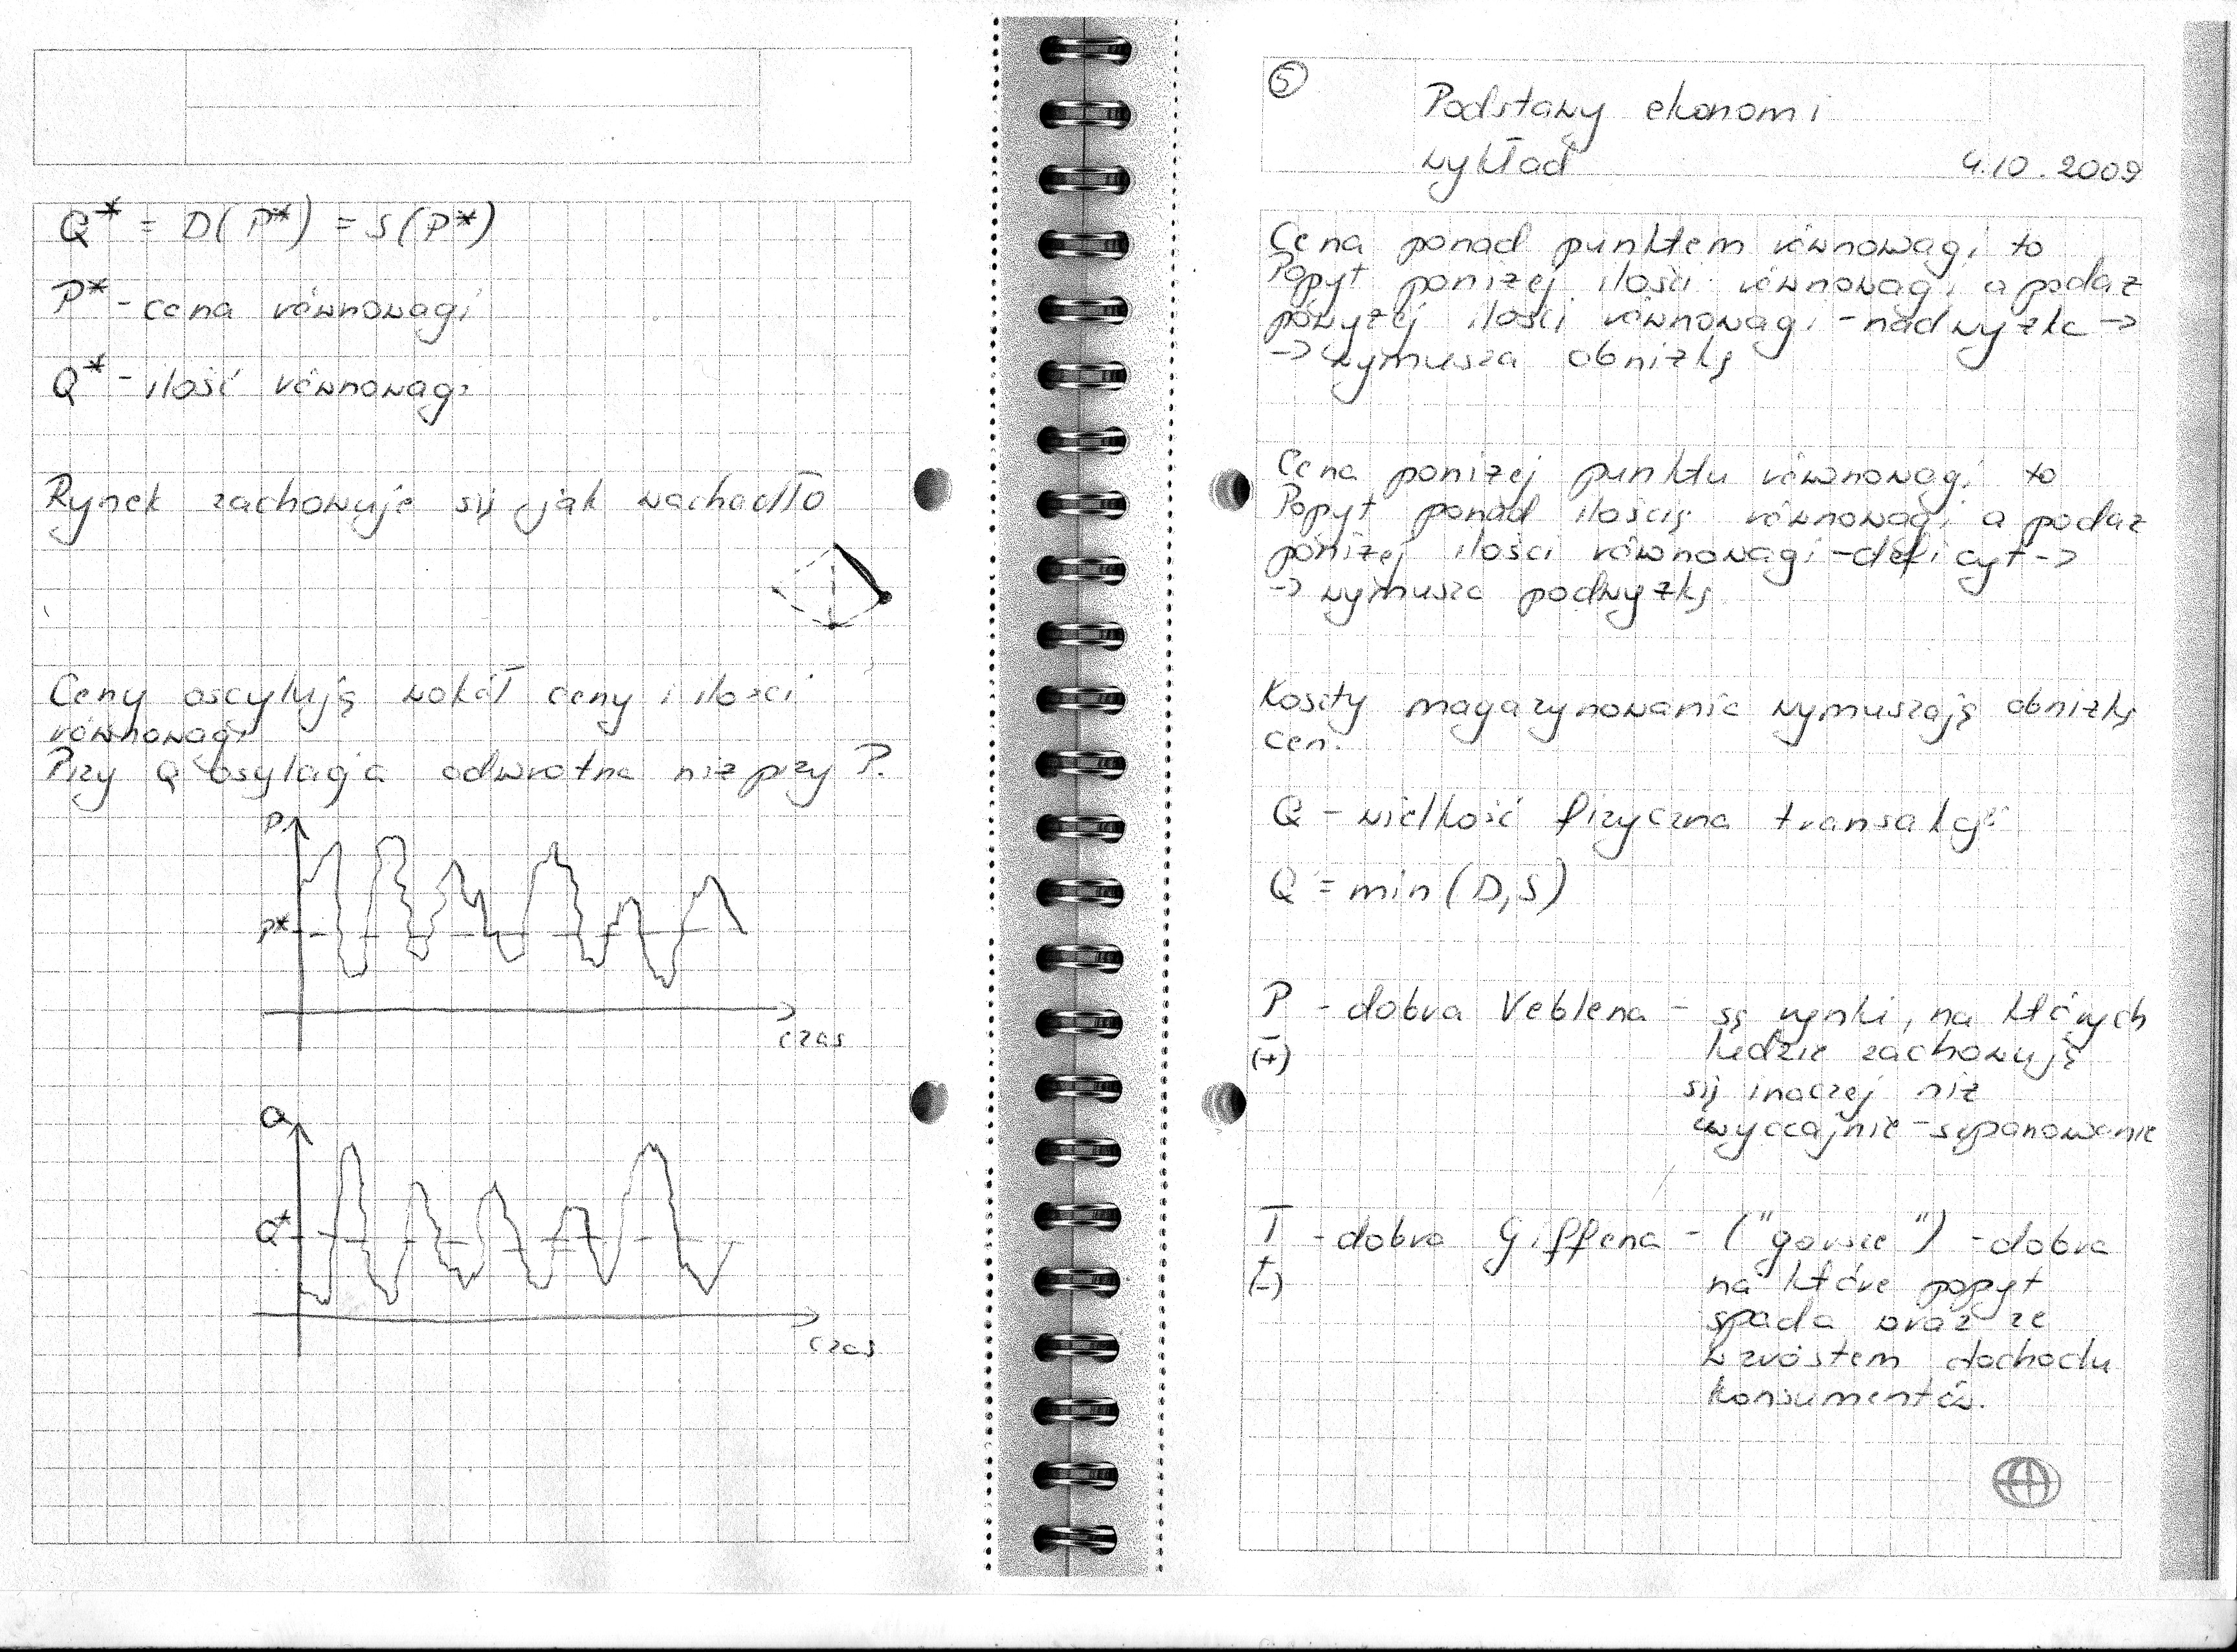 Q* = D(P*) = S(P*)
P* - cena równowagi
Q* - ilość równowagi
Rynek zachowuje się jak wachadło
Ceny oscylują wokół ceny i ilości
równowagi
Przy Q osylacja odwrotna niż przy P.
P
P*
czas
Q
Q*
czas
5
Podstawy ekonomi
wykład 4.10.2009
Cena ponad punktem równowagi to
Popyt poniżej ilości równowagi a podaż
powyżej ilości równowagi - nadwyżka ->
-> wymusza obniżkę
Cena poniżej punktu równowagi to
Popyt ponad ilością równowagi a podaż
poniżej ilości równowagi - deficyt ->
-> wymusza podwyżkę
Koszty magazynowania wymuszają obniżkę
cen.
Q - wielkość fizyczna transakcji
Q = min(D,S)
P - dobra Veblena - są rynki, na których
- ludzie zachowują
(+) się inaczej niż
zwyczajnie -
T - dobra Giffena - ("gorsze") - dobra
+ na które popyt
(-) spada wraz ze
wzrostem dochodu
konsumentów.